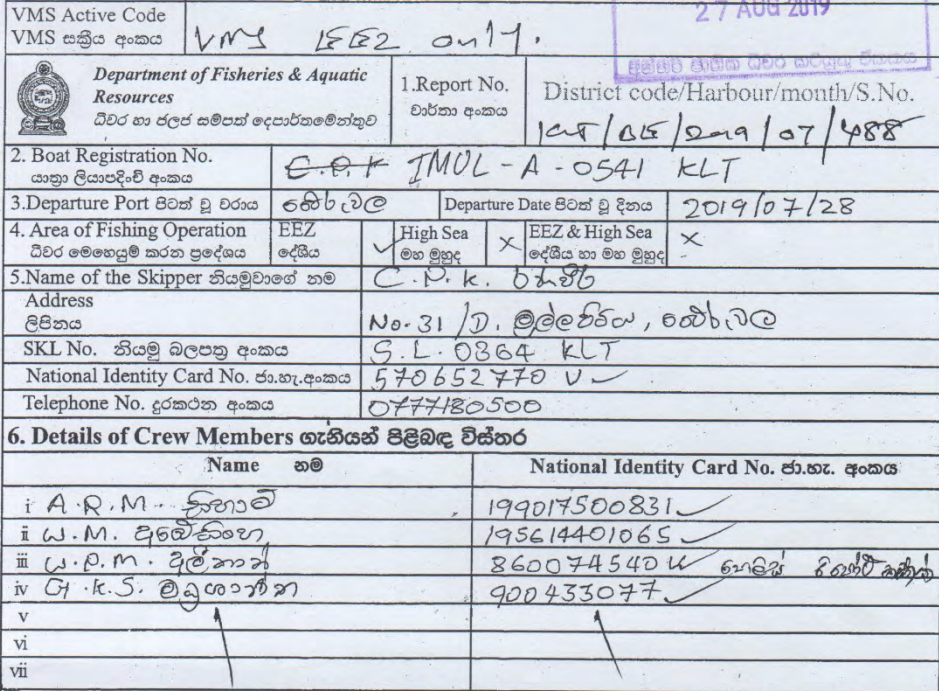 27 AUG 2019
VMS Active Code
VMS සක්‍රීය අංකය
VMS EEZ only.
Department of Fisheries & Aquatic Resources
ධීවර හා ජලජ සම්පත් දෙපාර්තමේන්තුව
1.Report No.
වාර්තා අංකය
District code/Harbour/month/S.No.
KLT/BE/2019/07/488
2. Boat Registration No.
යාත්‍රා ලියාපදිංචි අංකය
IMUL-A-0541 KLT
3.Departure Port පිටත් වූ වරාය බේරුවල Departure Date පිටත් වූ දිනය 2019/07/28
4. Area of Fishing Operation
ධීවර මෙහෙයුම් කරන ප්‍රදේශය
EEZ
දේශීය ✓
High Sea
මහ මුහුද ×
EEZ & High Sea
දේශීය හා මහ මුහුද ×
5.Name of the Skipper නියමුවාගේ නම C.P.K.
Address
ලිපිනය
No-31/D, බේරුවල
SKL No. නියමු බලපත්‍ර අංකය S.L.0364 KLT
National Identity Card No. ජා.හැ.අංකය 570652770 V
Telephone No. දුරකථන අංකය 0777180500
6. Details of Crew Members ගැනියන් පිළිබඳ විස්තර
Name නම National Identity Card No. ජා.හැ. අංකය
i A.R.M. 199017500831
ii W.M. අබේසිංහ 195614401065
iii W.P.M. 860074540 V
iv G.K.S. මධුශාන්ත 900433077
v
vi
vii